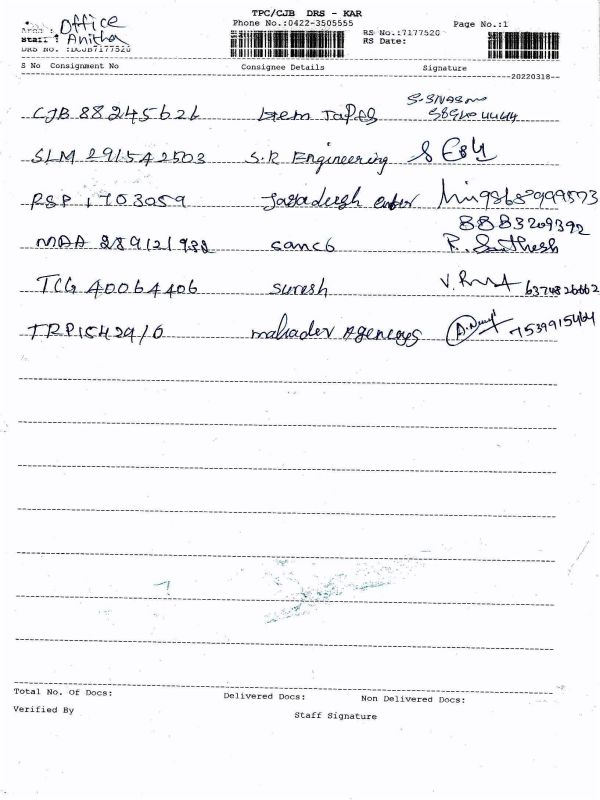 TPC/CJB DRS - KAR
Area : Office
Phone No.:0422-3505555
Page No.:1
Staff : Anitha
RS No.:7177520
RS Date:
DRS No. :DCJB7177520
S No Consignment No Consignee Details Signature
20220318
CJB 88245626 Gem Tapes
SLM 291542503 S.R Engineering
RSP 1703059 Jagadeesh enter 9865299573
8883209392
MAA 289121982 canc6 R. Santhosh
TCG 40064406 suresh 6374826662
TRP 1542916 mahadev Agenceys 7539915464
Total No. Of Docs: Delivered Docs: Non Delivered Docs:
Verified By
Staff Signature